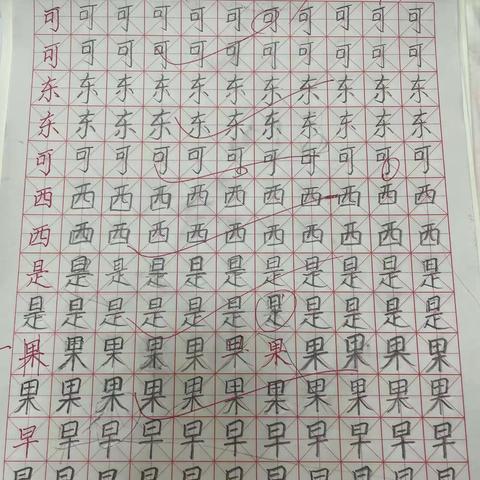 可可可可可可可可可可可
可可可可可可可可可可可
东东东东东东东东东东东
东东东东东东东东东东东
可可可可可可可可可可可
西西西西西西西西西西西
西西西西西西西西西西西
是是是是是是是是是是是
是是是是是是是是是是是
果果果果果果果果果果果
果果果果果果果果果果果
早早早早早早早早早早早